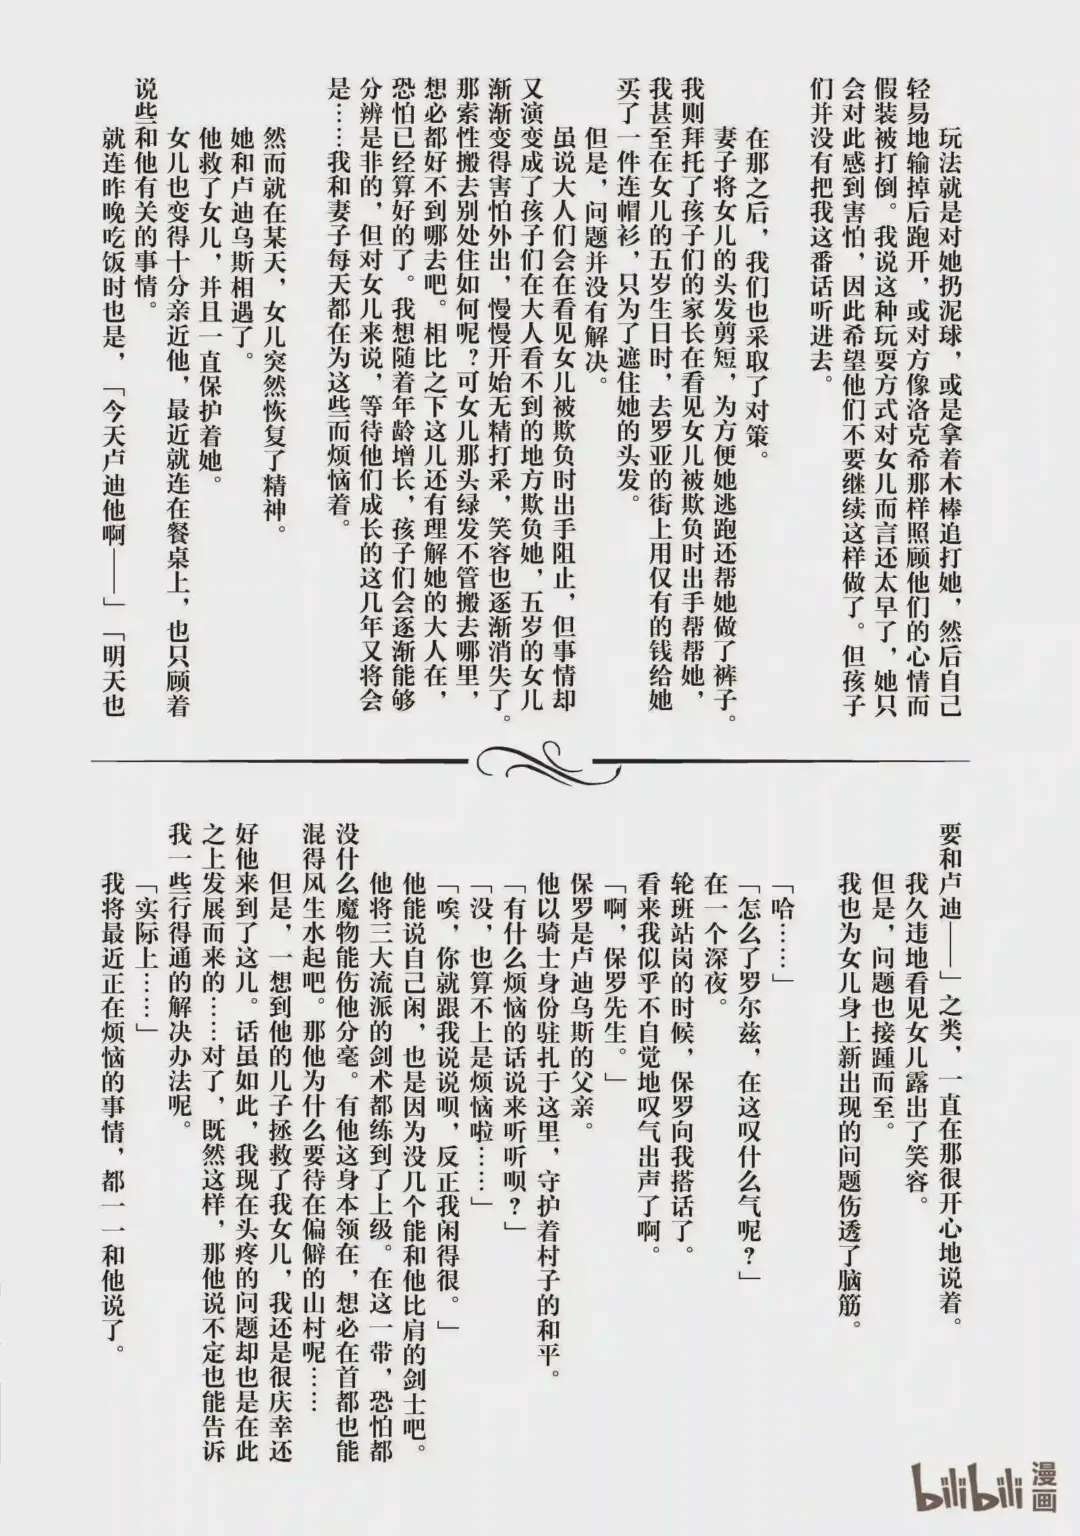 玩法就是对她扔泥球，或是拿着木棒追打她，然后自己
轻易地输掉后跑开，或对方像洛克希那样照顾他们的心情而
假装被打倒。我说这种玩耍方式对女儿而言还太早了，她只
会对此感到害怕，因此希望他们不要继续这样做了。但孩子
们并没有把我这番话听进去。
在那之后，我们也采取了对策。
妻子将女儿的头发剪短，为方便她逃跑还帮她做了裤子。
我则拜托了孩子们的家长在看见女儿被欺负时出手帮帮她，
我甚至在女儿的五岁生日时，去罗亚的街上用仅有的钱给她
买了一件连帽衫，只为了遮住她的头发。
但是，问题并没有解决。
虽说大人们会在看见女儿被欺负时出手阻止，但事情却
又演变成了孩子们在大人看不到的地方欺负她，五岁的女儿
渐渐变得害怕外出，慢慢开始无精打采，笑容也逐渐消失了。
那索性搬去别处住如何呢？可女儿那头绿发不管搬去哪里，
想必都好不到哪去吧。相比之下这儿还有理解她的大人在，
恐怕已经算好的了。我想随着年龄增长，孩子们会逐渐能够
分辨是非的，但对女儿来说，等待他们成长的这几年又将会
是……我和妻子每天都在为这些而烦恼着。
然而就在某天，女儿突然恢复了精神。
她和卢迪乌斯相遇了。
他救了女儿，并且一直保护着她。
女儿也变得十分亲近他，最近就连在餐桌上，也只顾着
说些和他有关的事情。
就连昨晚吃饭时也是，「今天卢迪他啊——」「明天也
要和卢迪——」之类，一直在那很开心地说着。
我久违地看见女儿露出了笑容。
但是，问题也接踵而至。
我也为女儿身上新出现的问题伤透了脑筋。
「哈……」
「怎么了罗尔兹，在这叹什么气呢？」
在一个深夜。
轮班站岗的时候，保罗向我搭话了。
看来我似乎不自觉地叹气出声了啊。
「啊，保罗先生。」
保罗是卢迪乌斯的父亲。
他以骑士身份驻扎于这里，守护着村子的和平。
「有什么烦恼的话说来听听呗？」
「没，也算不上是烦恼啦……」
「唉，你就跟我说说呗，反正我闲得很。」
他能说自己闲，也是因为没几个能和他比肩的剑士吧。
他将三大流派的剑术都练到了上级。在这一带，恐怕都
没什么魔物能伤他分毫。有他这身本领在，想必在首都也能
混得风生水起吧。那他为什么要待在偏僻的山村呢……
但是，一想到他的儿子拯救了我女儿，我还是很庆幸还
好他来到了这儿。话虽如此，我现在头疼的问题却也是在此
之上发展而来的……对了，既然这样，那他说不定也能告诉
我一些行得通的解决办法呢。
「实际上……」
我将最近正在烦恼的事情，都一一和他说了。
bilibili漫画